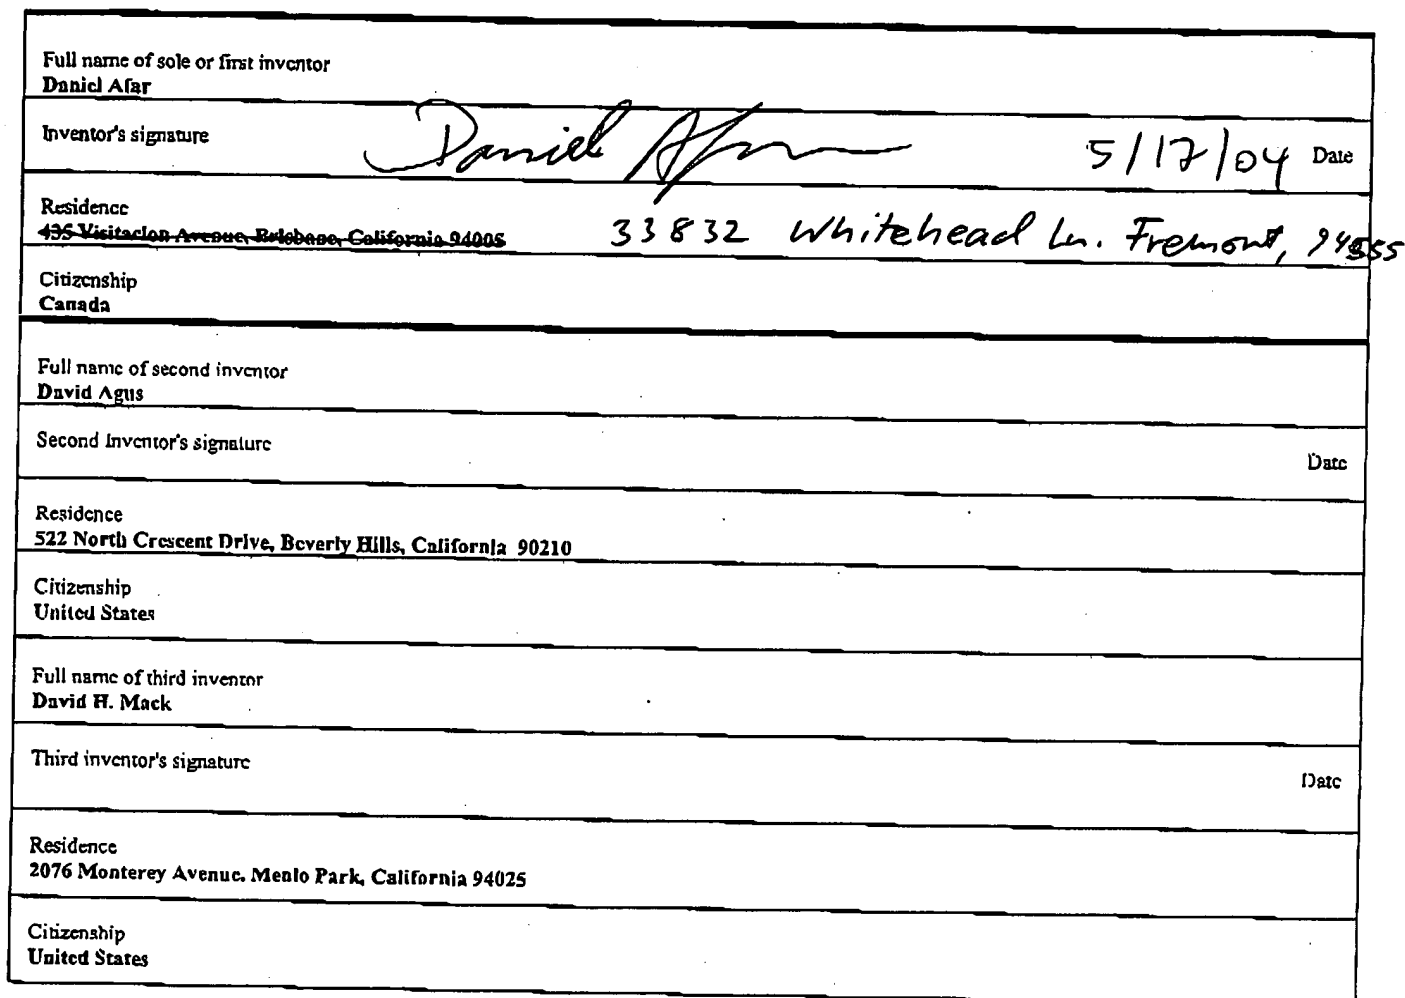 Full name of sole or first inventor
Daniel Afar
Inventor's signature Daniel Afar 5/17/04 Date
Residence
435 Visitacion Avenue, Brisbane, California 94005 33832 Whitehead Ln. Fremont, 94555
Citizenship
Canada
Full name of second inventor
David Agus
Second Inventor's signature
Date
Residence
522 North Crescent Drive, Beverly Hills, California 90210
Citizenship
United States
Full name of third inventor
David H. Mack
Third inventor's signature
Date
Residence
2076 Monterey Avenue. Menlo Park, California 94025
Citizenship
United States